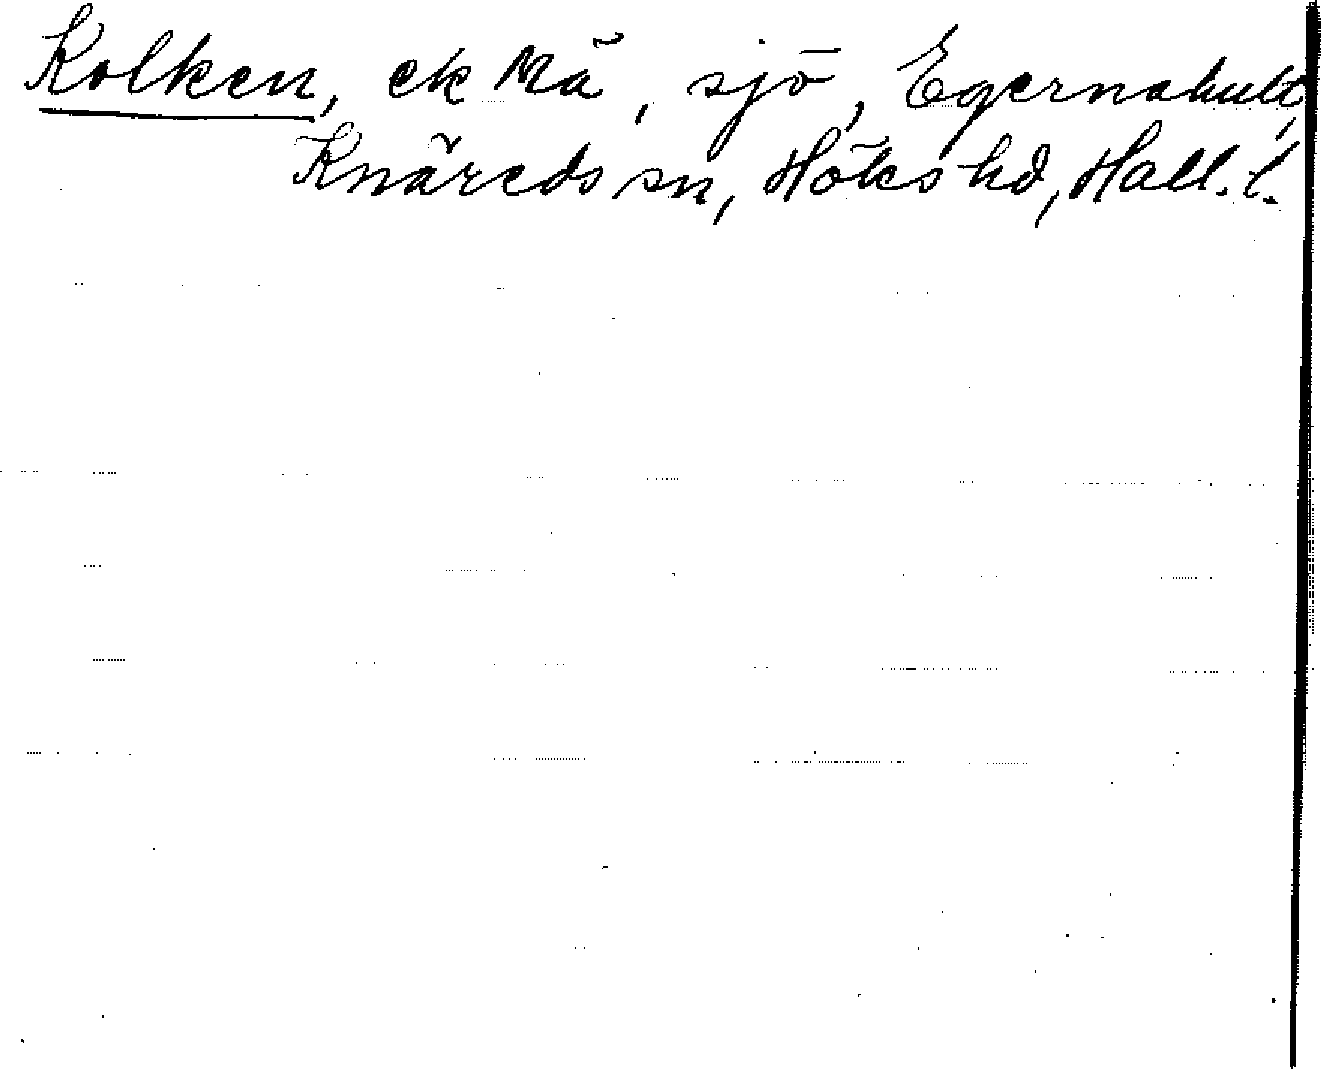 Kolken, ek Mä, sjö, Egernahult,
Knäreds sn, Höks hd, Hall. l.